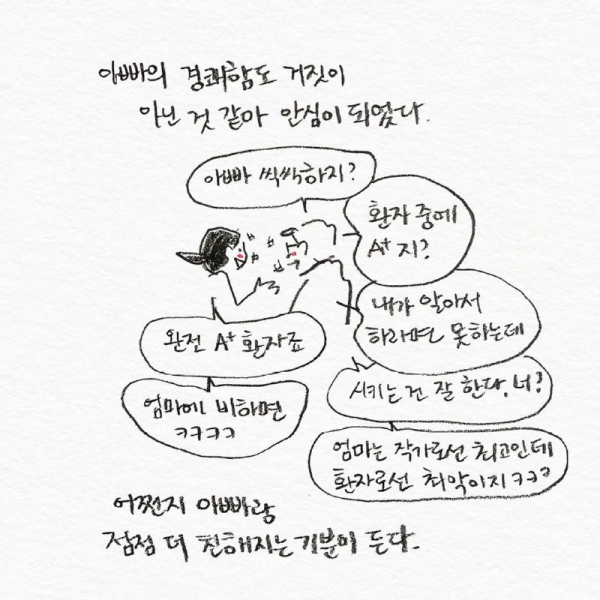 아빠의 경쾌함도 거짓이
아닌 것 같아 안심이 되었다.
아빠 씩씩하지?
환자 중에
A+ 지?
내가 알아서
하라면 못하는데
시키는 건 잘 한다, 너?
완전 A+ 환자죠
엄마에 비하면
ㅋㅋㅋㅋ
엄마는 작가로선 최고인데
환자로선 최악이지 ㅋㅋㅋ
어쩐지 아빠랑
점점 더 친해지는 기분이 든다.